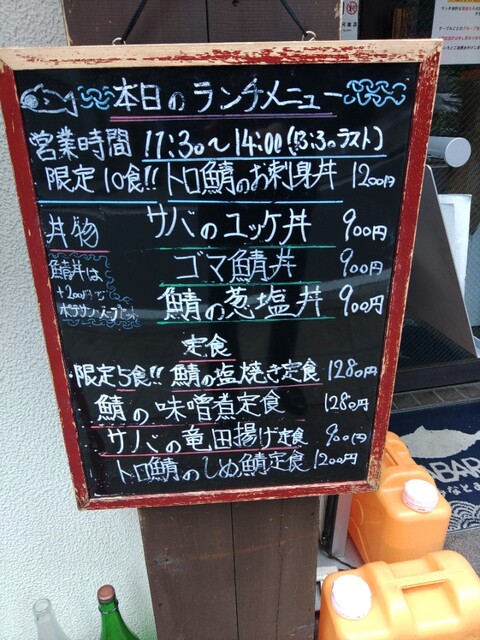 本日のランチメニュー
営業時間 11:30〜14:00(13:30ラスト)
限定10食!! トロ鯖のお刺身丼 1200円
丼物
サバのユッケ丼 900円
ゴマ鯖丼 900円
鯖の葱塩丼 900円
鯖丼は
+200円で
定食
限定5食!! 鯖の塩焼き定食 1280円
鯖の味噌煮定食 1280円
サバの竜田揚げ定食 900円
トロ鯖のしめ鯖定食 1200円